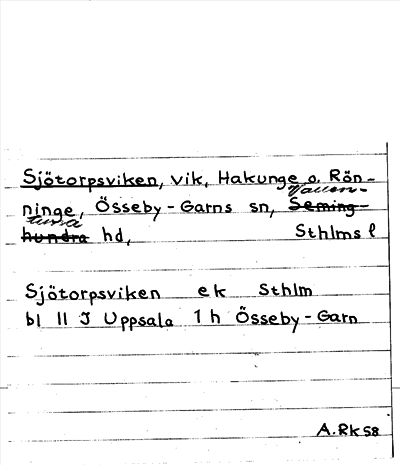 Sjötorpsviken, vik, Hakunge o. Rön-
Vallen-
ninge, Össeby-Garns sn, Seming-
tuna
hundra hd, Sthlms l
Sjötorpsviken ek Sthlm
bl 11 J Uppsala 1 h Össeby-Garn
A.Rk 58